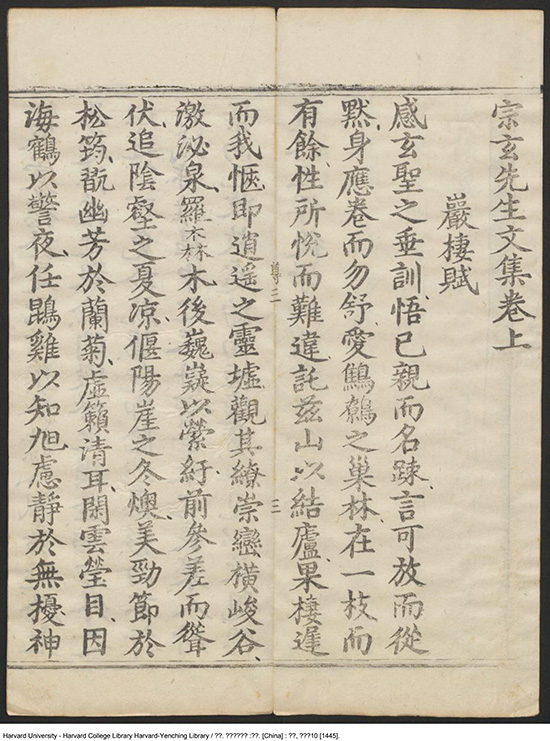 宗玄先生文集卷上
巖棲賦
感玄聖之垂訓悟已親而名踈言可放而從
黙身應卷而勿舒愛鷦鷯之巢林在一枝而
有餘性所悅而難違託茲山以結廬果棲遅
而我愜即逍遥之靈墟觀其繚崇巒橫峻谷
尊三
三
激泌泉羅木林木後巍嶷以縈紆前參差而聳
伏追陰壑之夏凉偃陽崖之冬燠美勁節於
松筠翫幽芳於蘭菊虛籟清耳閑雲瑩目因
海鶴以警夜任鵾雞以知旭慮靜於無擾神
Harvard University - Harvard College Library Harvard-Yenching Library / ??. ?????? :??. [China] : ??, ???10 [1445].